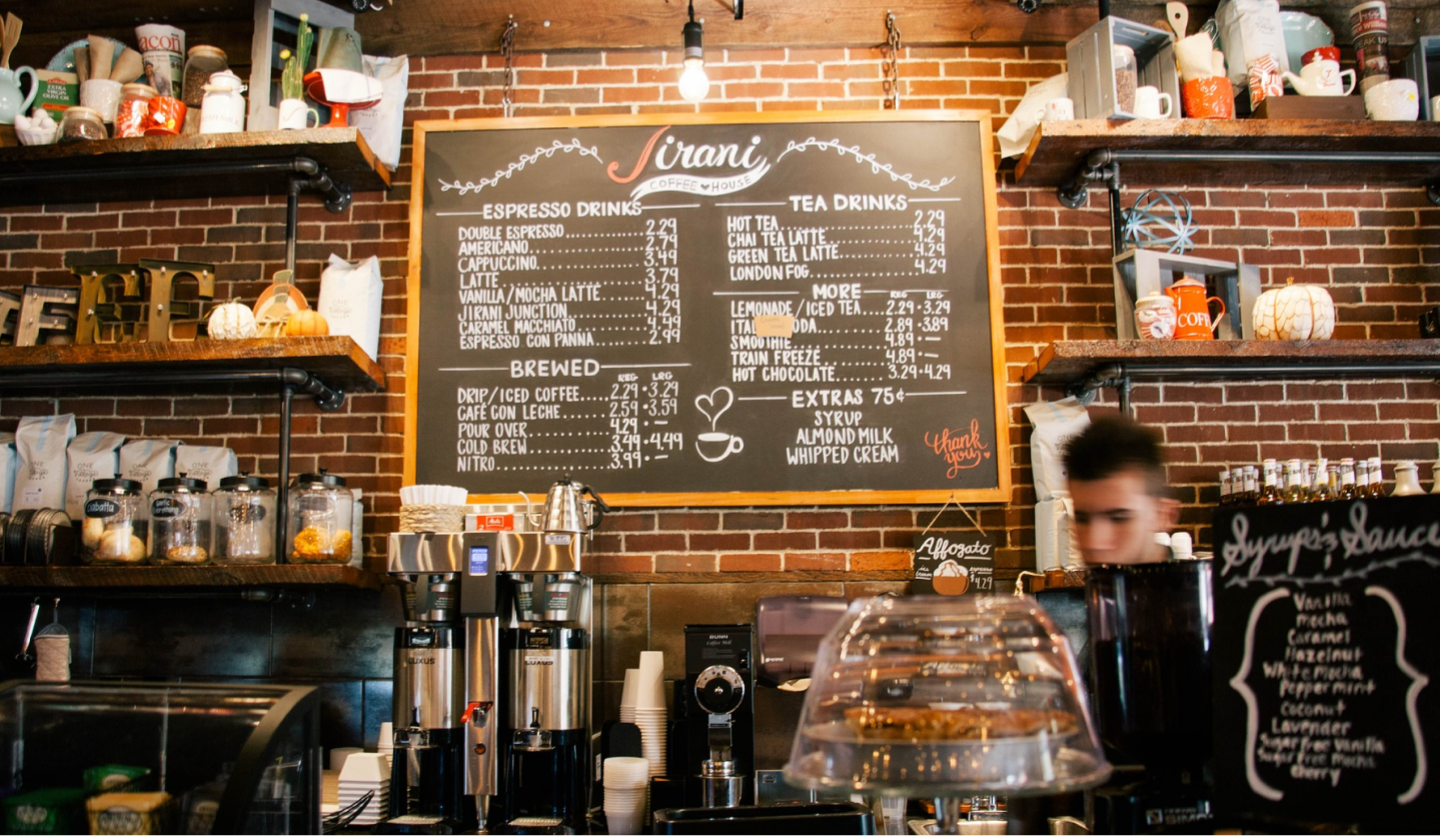 Jirani
COFFEE HOUSE
ESPRESSO DRINKS
DOUBLE ESPRESSO 2.29
AMERICANO 2.79
CAPPUCCINO 3.49
LATTE 3.79
VANILLA/MOCHA LATTE 4.29
JIRANI JUNCTION 4.29
CARAMEL MACCHIATO 4.49
ESPRESSO CON PANNA 2.99
BREWED
REG LRG
DRIP/ICED COFFEE 2.29 • 3.29
CAFÉ CON LECHE 2.59 • 3.59
POUR OVER 4.29 • —
COLD BREW 3.49 • 4.49
NITRO 3.99 • —
TEA DRINKS
HOT TEA 2.29
CHAI TEA LATTE 4.29
GREEN TEA LATTE 4.29
LONDON FOG 4.29
MORE
REG LRG
LEMONADE/ICED TEA 2.29 • 3.29
2.89 • 3.89
SMOOTHIE 4.89 • —
TRAIN FREEZE 4.89 • —
HOT CHOCOLATE 3.29 • 4.29
EXTRAS 75¢
SYRUP
ALMOND MILK
WHIPPED CREAM
thank
you
Affogato
ice cream espresso
$4.29
Syrups & Sauce
Vanilla
mocha
Caramel
Hazelnut
White mocha
Peppermint
Coconut
Lavender
Sugar free Vanilla
Sugar free mocha
cherry
EXTRA
VIRGIN
OLIVE OIL
acon
COFF
Ciabatta
LUXUS
LUXUS
BUNN
Coffee Mill